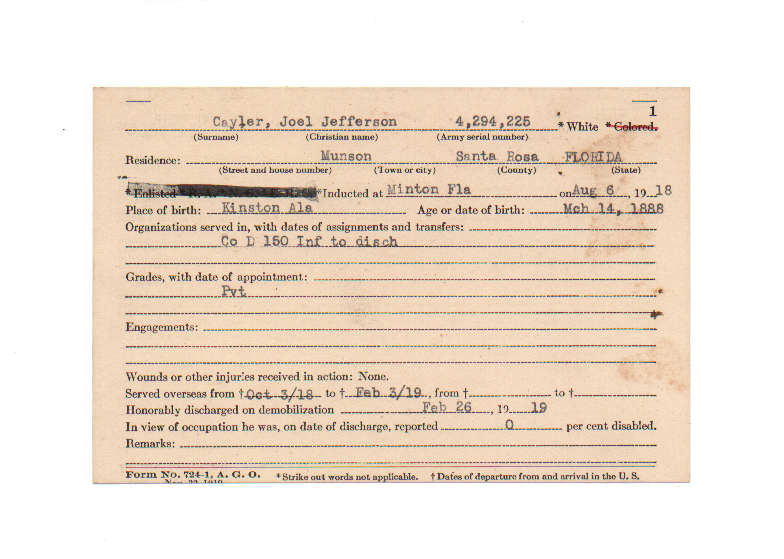 1
Cayler, Joel Jefferson 4,294,225 * White * Colored.
(Surname) (Christian name) (Army serial number)
Residence: Munson Santa Rosa FLORIDA
(Street and house number) (Town or city) (County) (State)
* Enlisted *Inducted at Minton Fla on Aug 6, 19 18
Place of birth: Kinston Ala Age or date of birth: Mch 14, 1888
Organizations served in, with dates of assignments and transfers:
Co D 150 Inf to disch
Grades, with date of appointment:
Pvt
Engagements:
Wounds or other injuries received in action: None.
Served overseas from † Oct 3/18 to † Feb 3/19, from † to †
Honorably discharged on demobilization Feb 26, 19 19
In view of occupation he was, on date of discharge, reported 0 per cent disabled.
Remarks:
Form No. 724-1, A. G. O. * Strike out words not applicable. † Dates of departure from and arrival in the U. S.